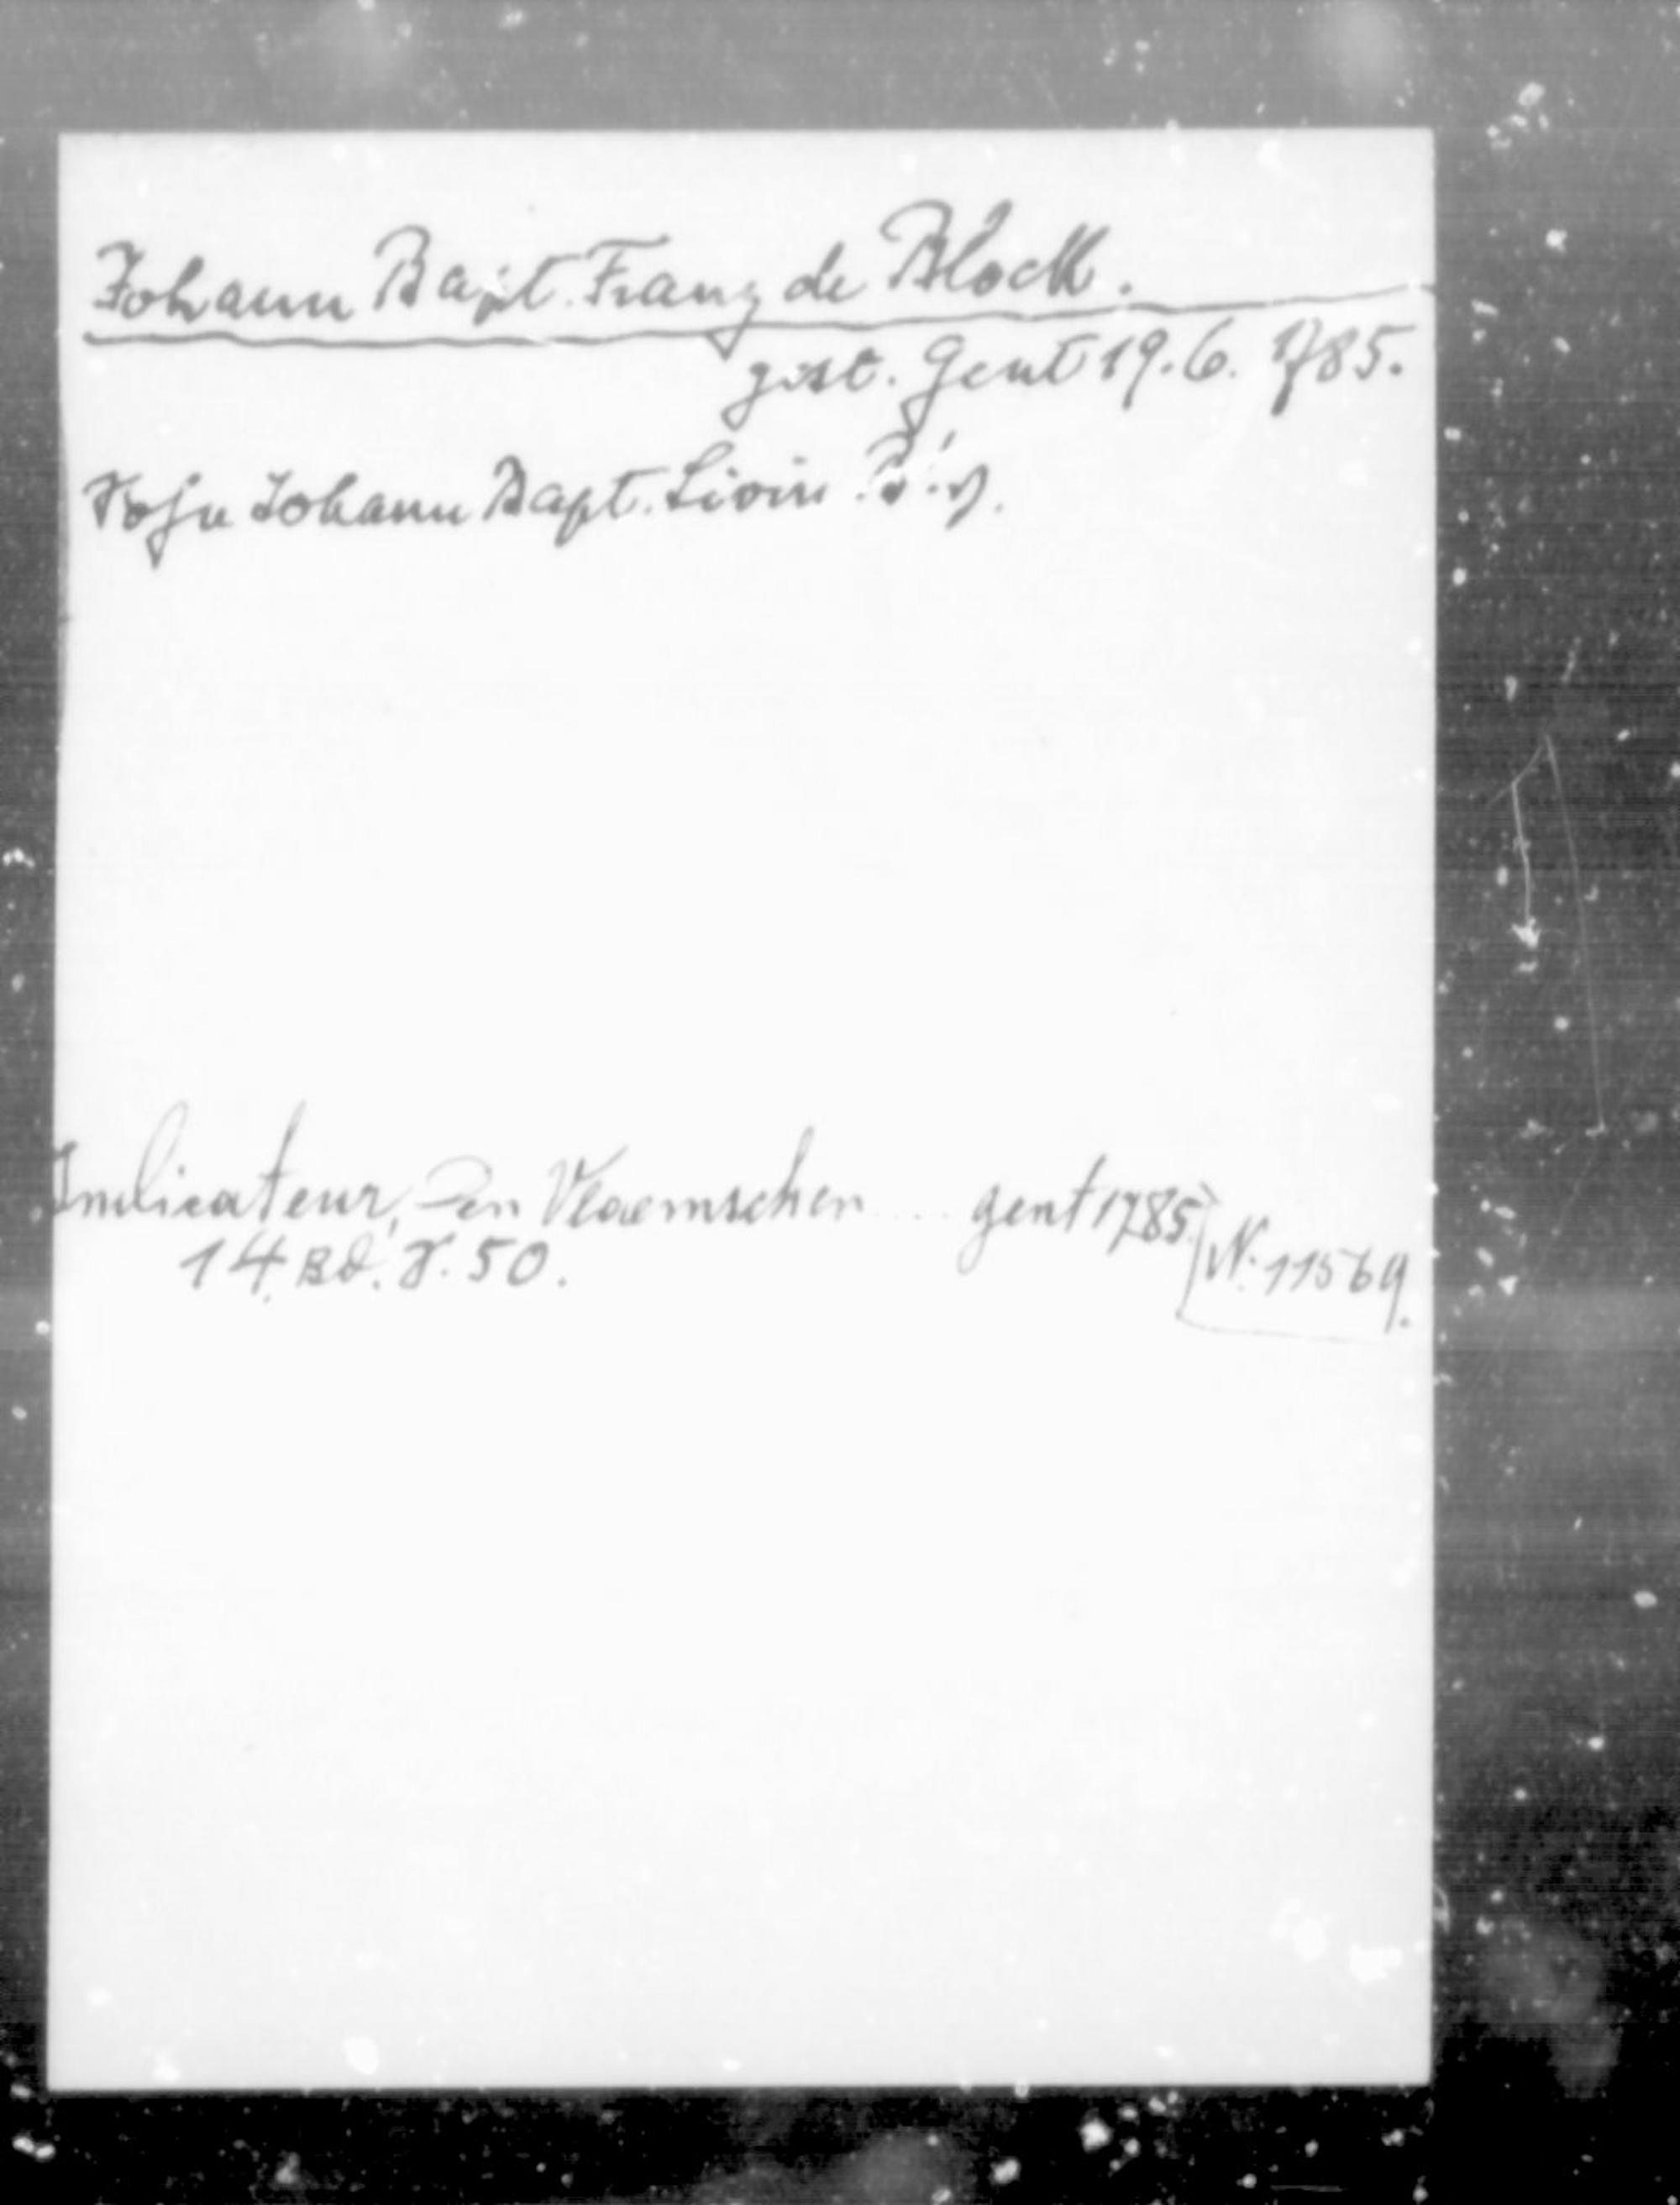 Johann Bapt. Franz de Block.
gest. Gent 19.6. 1785.
Sohn Johann Bapt. Livin
Indicateur, Den Vlaemschen ... gent 1785
14. Bd. S. 50.
N. 11569.